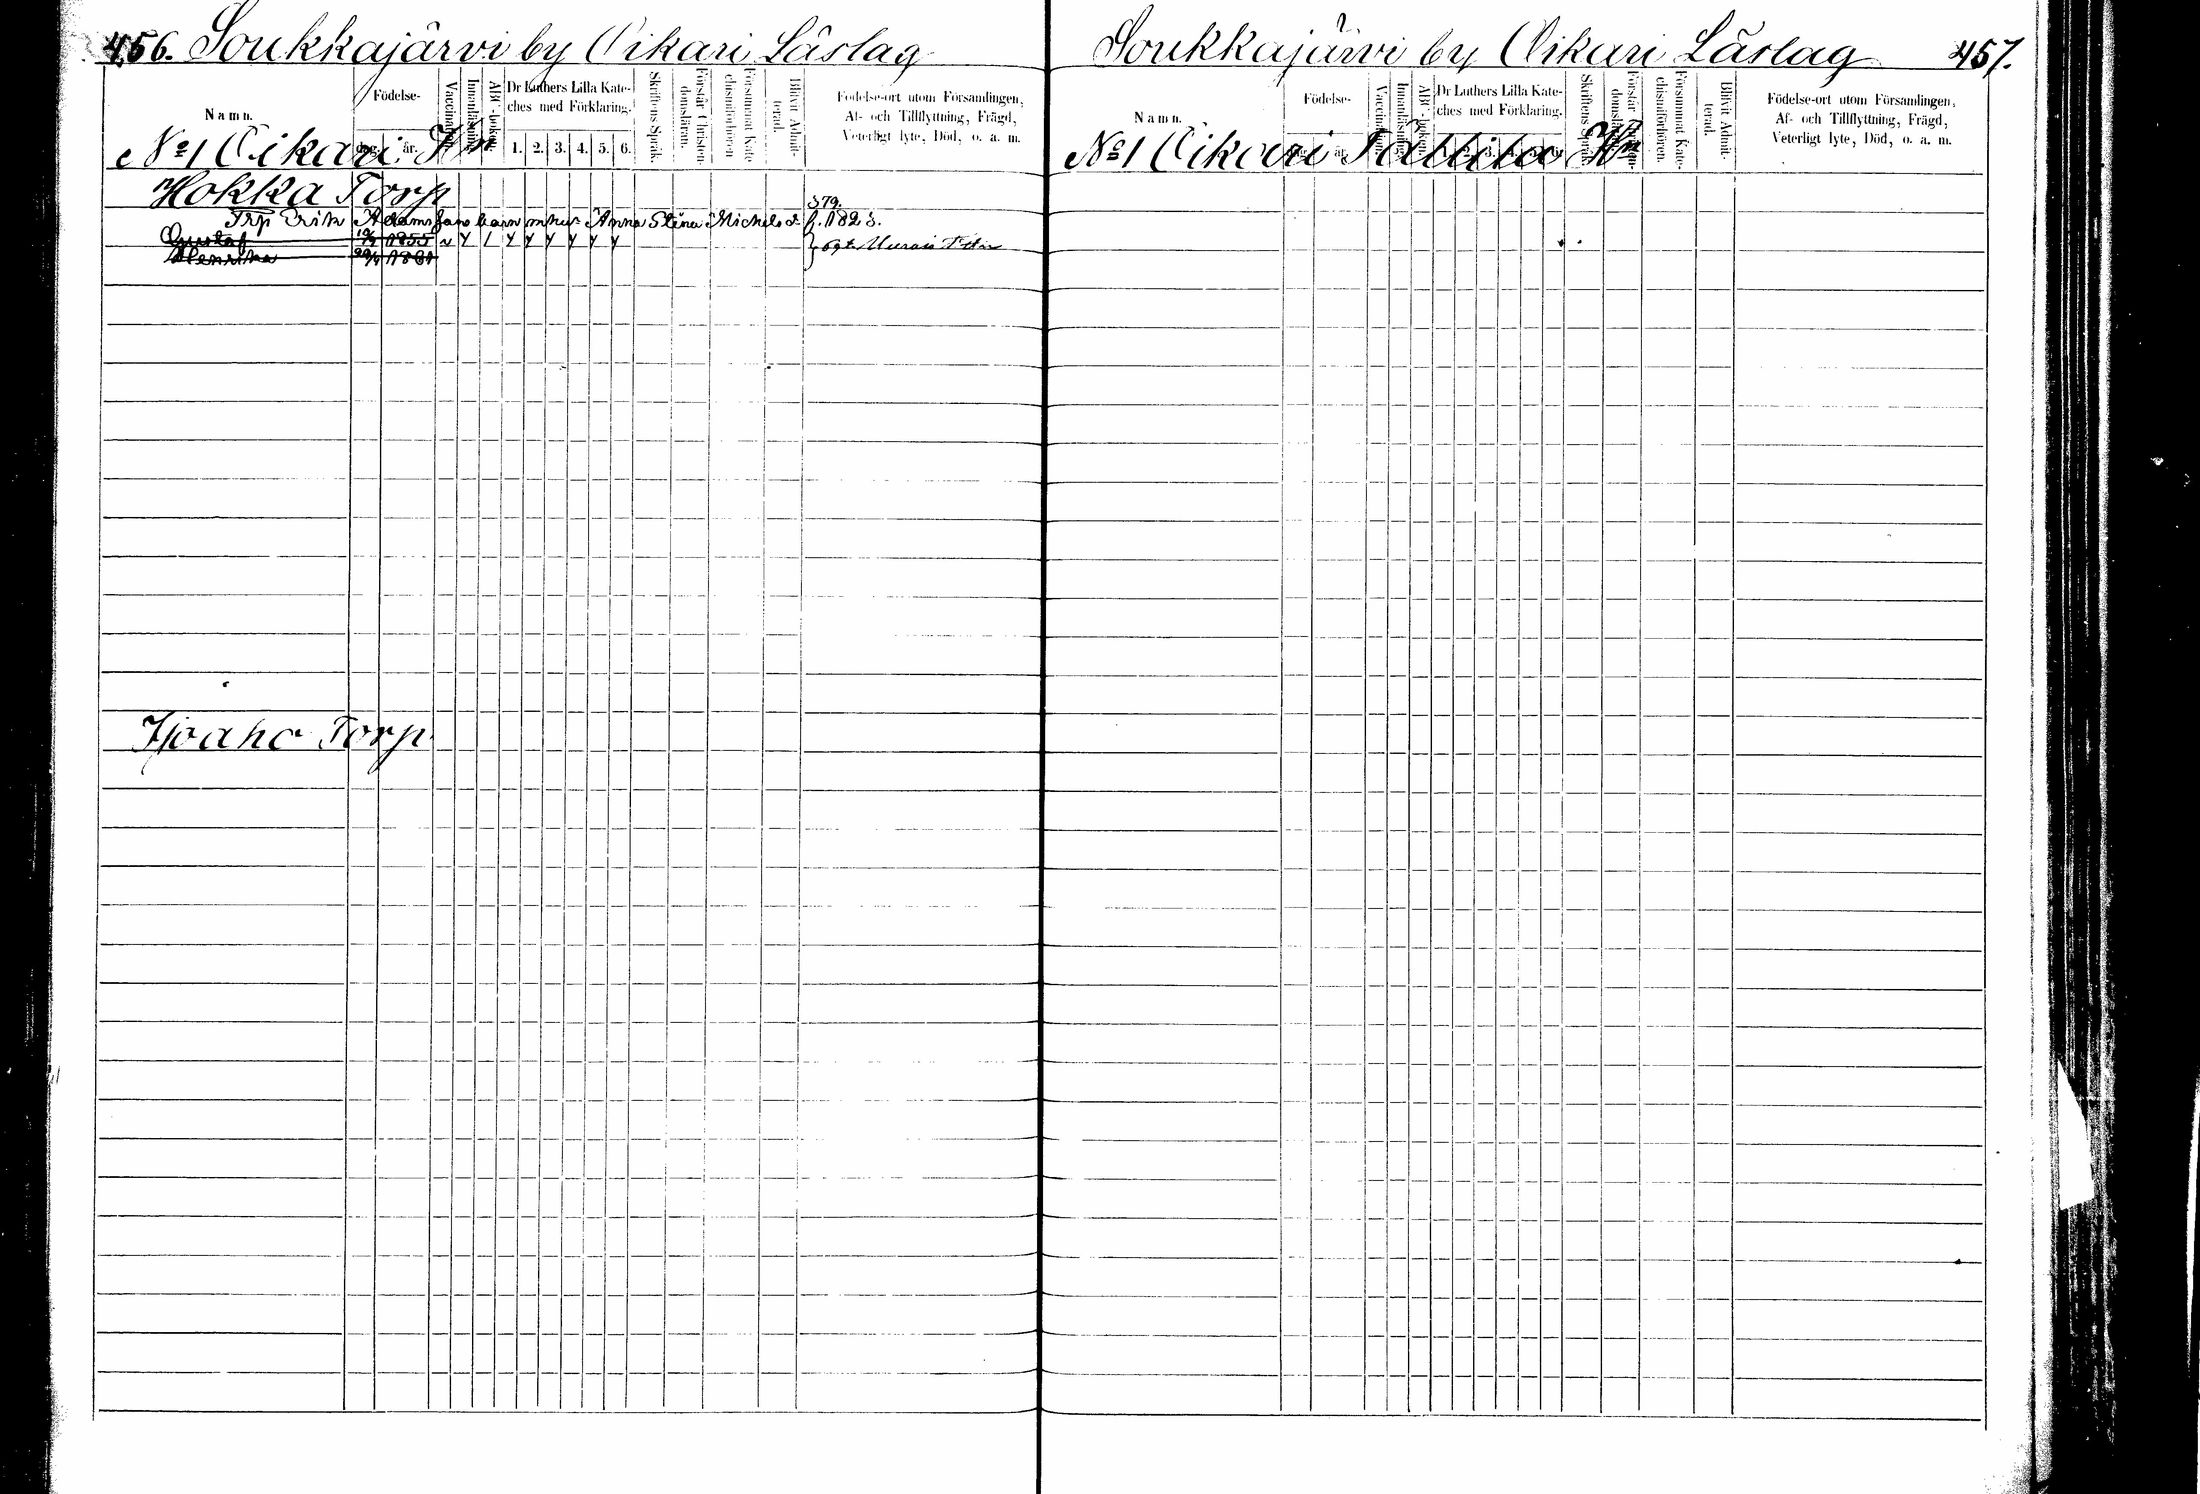 456. Soukkajärvi by Oikari Läslag
Namn.
Födelse-
dag. år.
Vaccinerad.
Innanläsning.
ABC-boken.
Dr Luthers Lilla Kate-
ches med Förklaring.
1. 2. 3. 4. 5. 6.
Skriftens Språk.
Förstår Christen-
domsläran.
Försummat Kate-
chismiförhören
Blifvit Admit-
terad.
Födelse-ort utom Församlingen,
Af- och Tillflyttning, Frägd,
Veterligt lyte, Död, o. a. m.
No 1 Oikari Hn
Hokka Torp
379.
Trp Erik Adamsson barn m hus Anna Stina Michels d f. 1823.
Gustaf 1855
Henrika 1861
Ahola Torp
Soukkajärvi by Oikari Läslag 457.
Namn.
Födelse-
år.
Vaccinerad.
Innanläsning.
ABC-boken.
Dr Luthers Lilla Kate-
ches med Förklaring.
Skriftens Språk.
Förstår Christen-
domsläran.
Försummat Kate-
chismiförhören.
Blifvit Admit-
terad.
Födelse-ort utom Församlingen,
Af- och Tillflyttning, Frägd,
Veterligt lyte, Död, o. a. m.
No 1 Oikari Hn